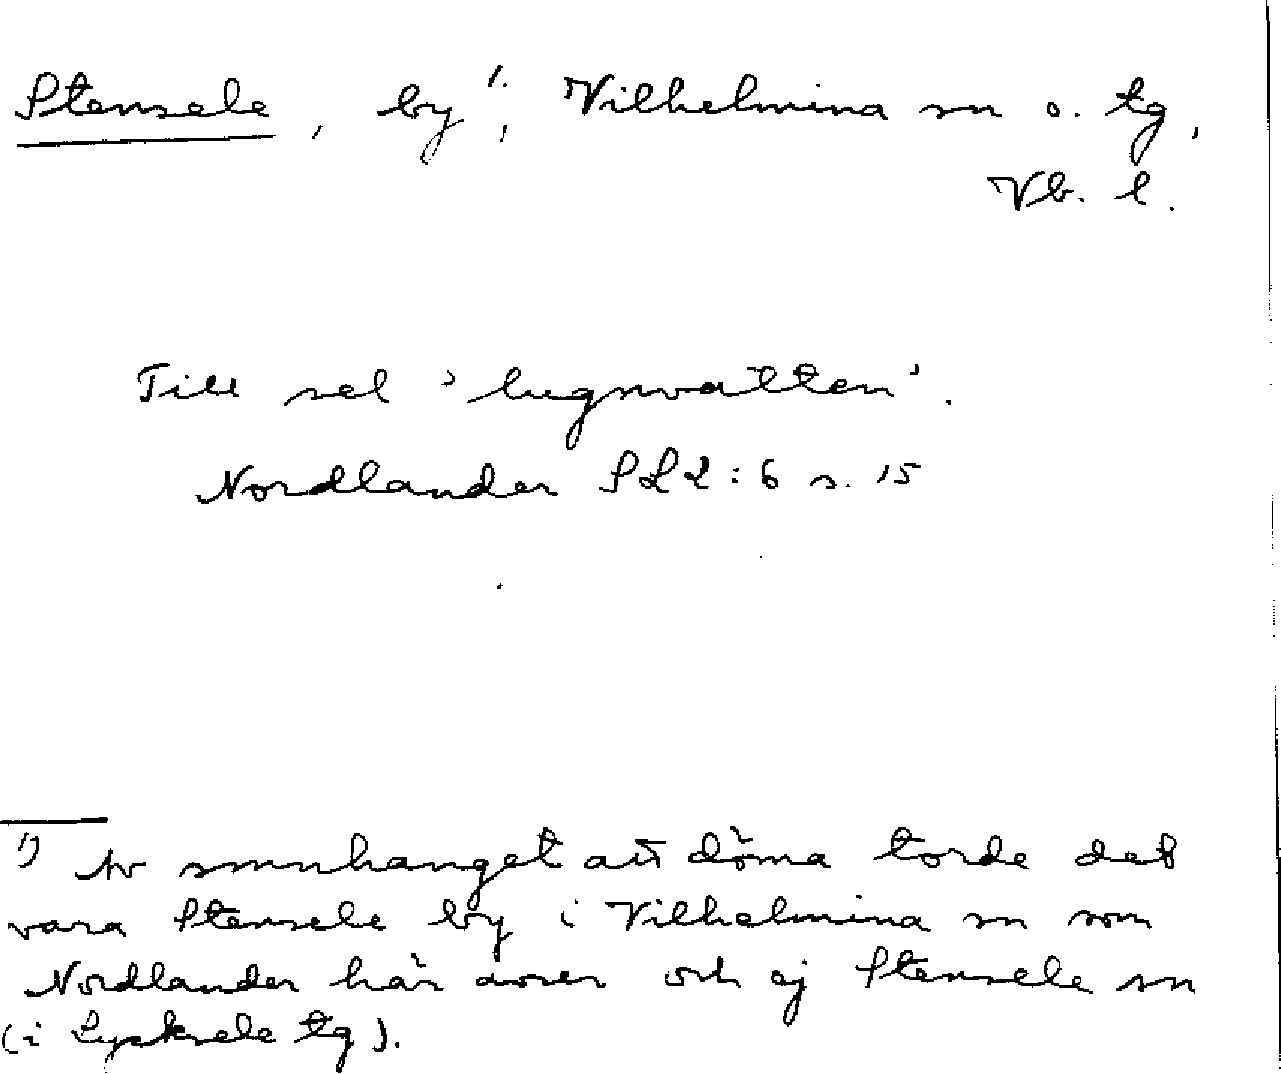 Stensele, by ¹⁾, Vilhelmina sn o. tg,
Vb. l.
Till sel 'lugnvatten'.
Nordlander SLL:6 s. 15
¹⁾ Av smnhanget att döma torde det
vara Stensele by i Vilhelmina sn som
Nordlander här avser och ej Stensele sn
(i Lycksele tg).